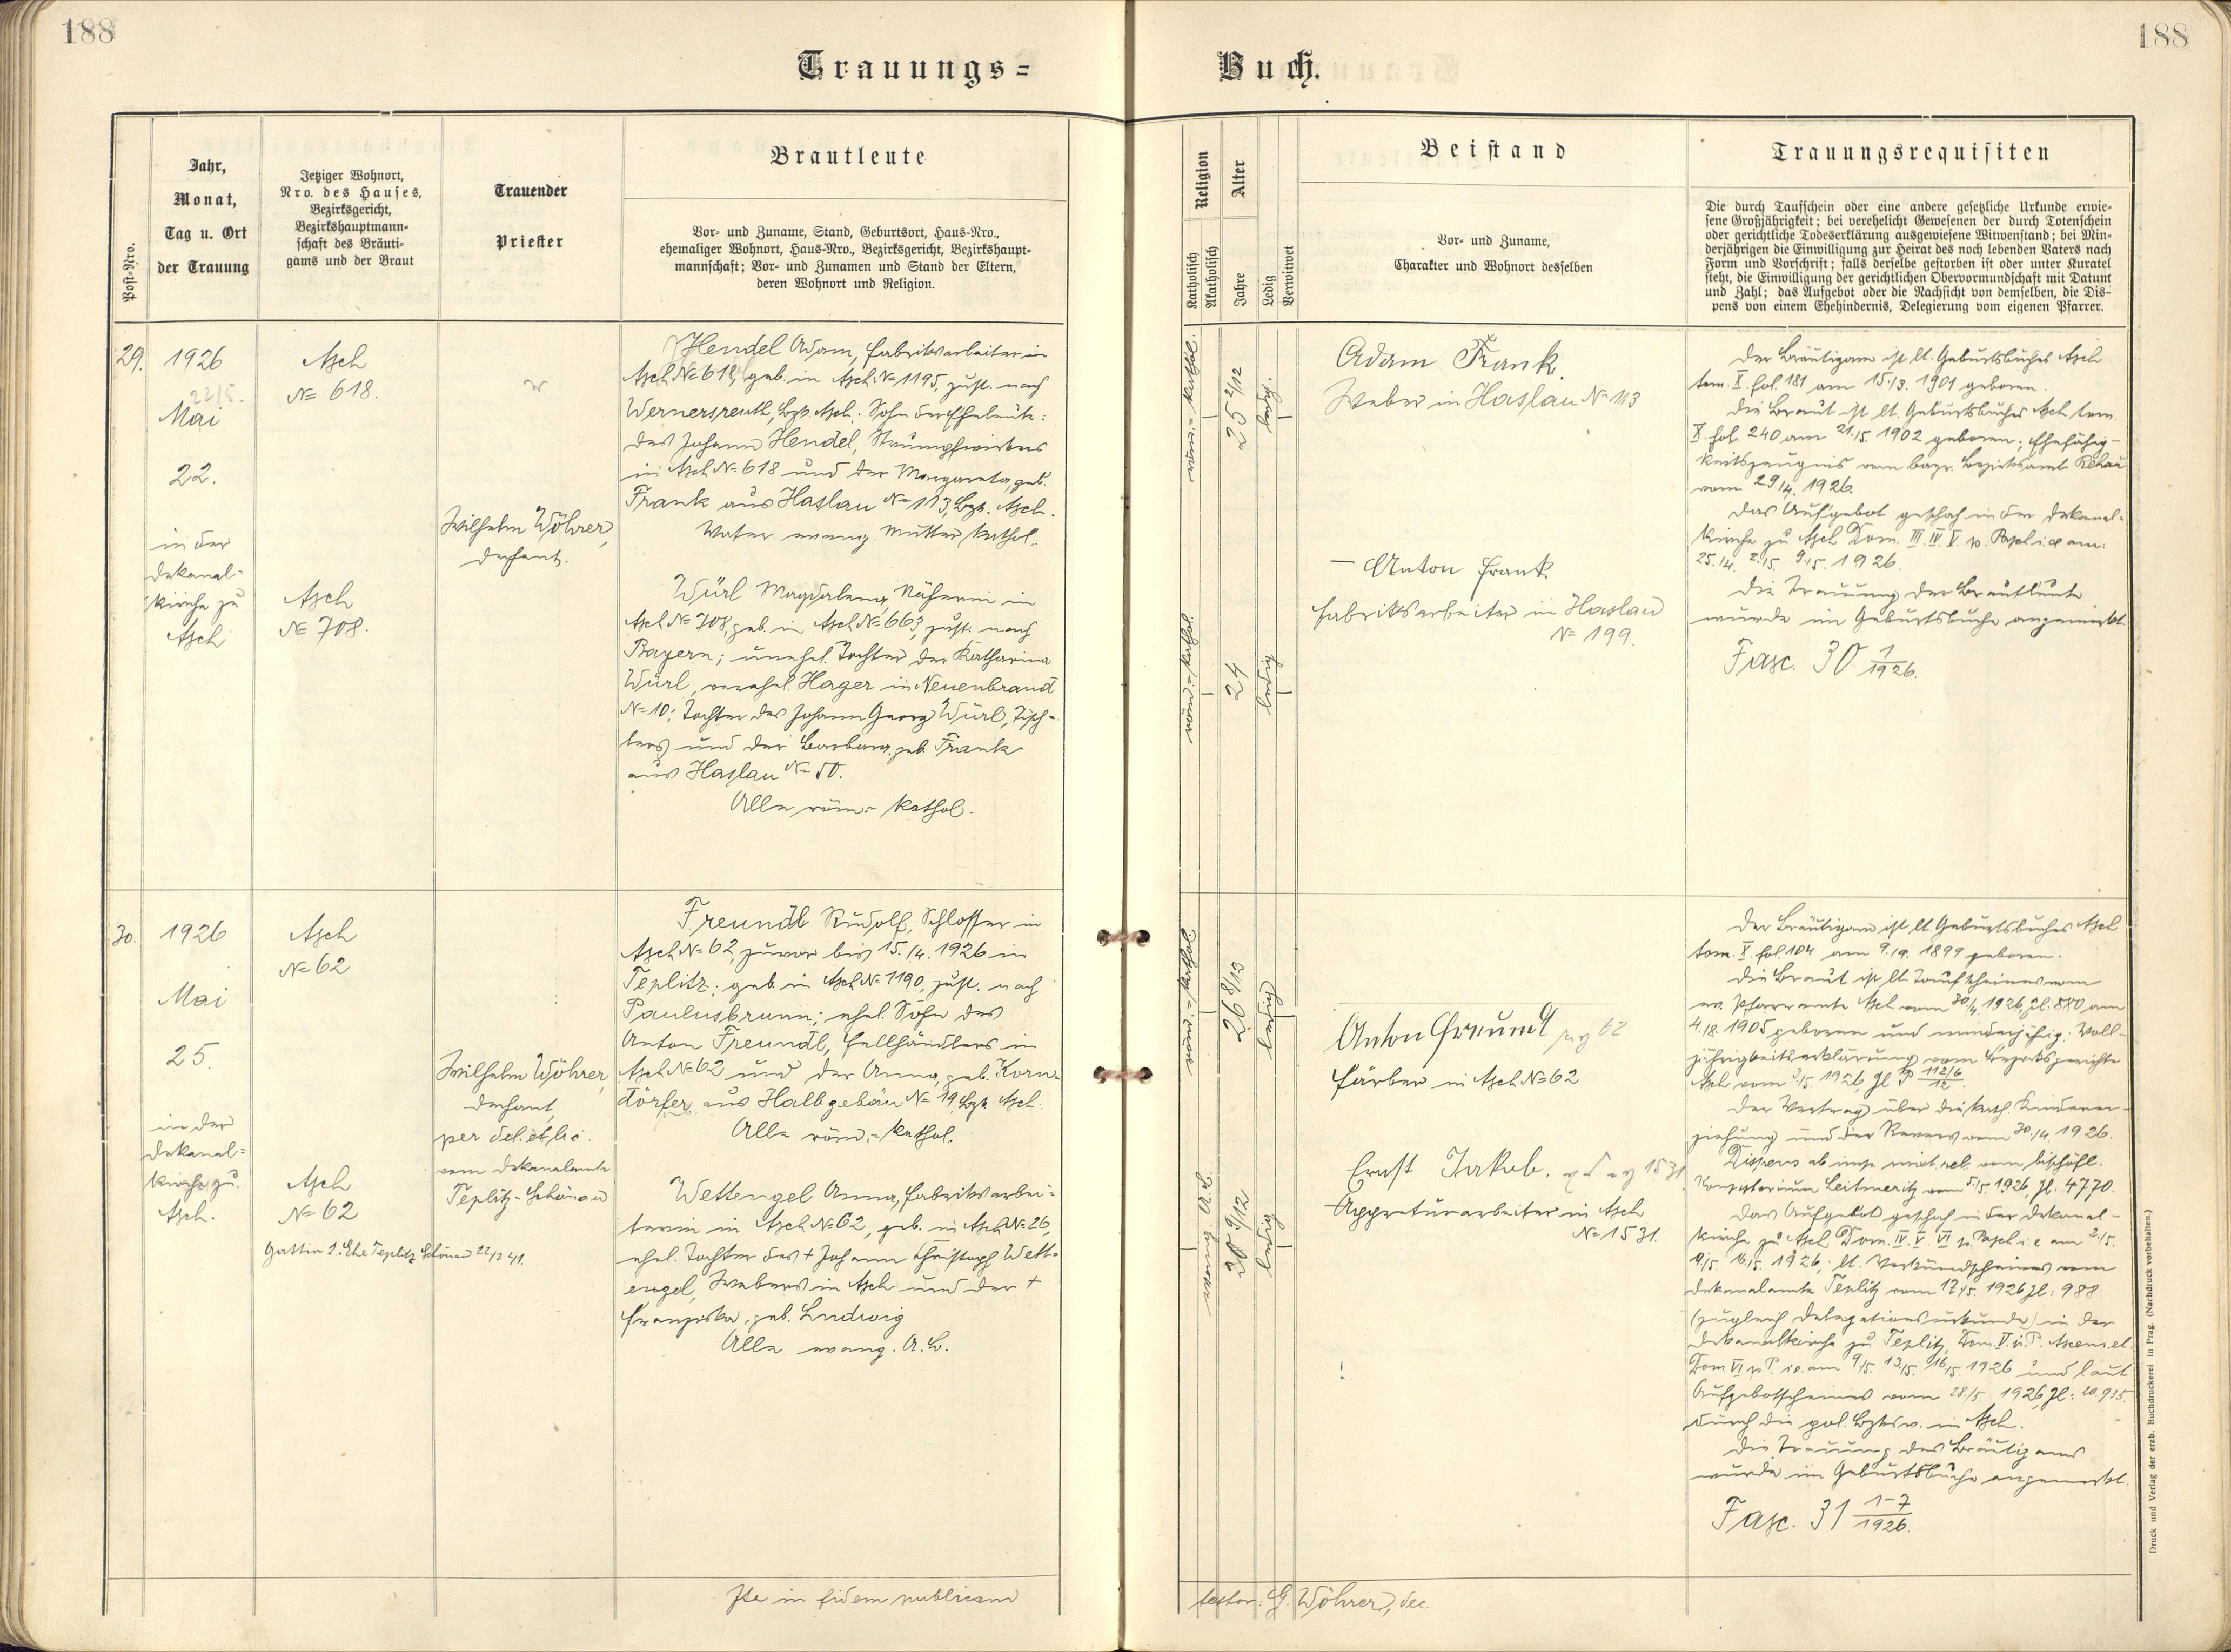 188
188
Trauungs=
Buch.
Post-Nro.
Jahr,
Monat,
Tag u. Ort
der Trauung
Jetziger Wohnort,
Nro. des Hauses,
Bezirksgericht,
Bezirkshauptmann-
schaft des Bräuti-
gams und der Braut
Trauender
Priester
Brautleute
Vor- und Zuname, Stand, Geburtsort, Haus-Nro.,
ehemaliger Wohnort, Haus-Nro., Bezirksgericht, Bezirkshaupt-
mannschaft; Vor- und Zunamen und Stand der Eltern,
deren Wohnort und Religion.
Religion
Katholisch
Akatholisch
Alter
Jahre
Ledig
Verwitwet
Beistand
Vor- und Zuname,
Charakter und Wohnort desselben
Trauungsrequisiten
Die durch Taufschein oder eine andere gesetzliche Urkunde erwie-
sene Großjährigkeit; bei verehelicht Gewesenen der durch Totenschein
oder gerichtliche Todeserklärung ausgewiesene Witwenstand; bei Min-
derjährigen die Einwilligung zur Heirat des noch lebenden Vaters nach
Form und Vorschrift; falls derselbe gestorben ist oder unter Kuratel
steht, die Einwilligung der gerichtlichen Obervormundschaft mit Datum
und Zahl; das Aufgebot oder die Nachsicht von demselben, die Dis-
pens von einem Ehehindernis, Delegierung vom eigenen Pfarrer.
29.
1926
22/5.
Mai
22.
in der
Dekanal-
kirche zu
Asch
Asch
№ 618.
Asch
№ 708.
Wilhelm Wöhrer,
Dechant.
Hendel Adam, Fabriksarbeiter in
Asch № 618, geb. in Asch № 1195, zust. nach
Wernersreuth, Bzk. Asch. Sohn der Eheleute:
des Johann Hendel, Strumpfwirkers
in Asch № 618 und der Margareta, geb.
Frank aus Haslau № 113, Bzk. Asch.
Vater evang. Mutter kathol.
Würl Magdalena, Näherin in
Asch № 708, geb. in Asch № 663, zust. nach
Bayern; unehel. Tochter der Katharina
Würl, verehel. Hager in Neuenbrand
№ 10; Tochter des Johann Georg Würl, Tisch-
lers und der Barbara, geb. Frank
aus Haslau № 50.
Alle röm.- kathol.
röm.- kathol.
25 2/12
ledig.
röm.- kathol.
24
ledig
Adam Frank
Weber in Haslau № 113
Anton Frank
Fabriksarbeiter in Haslau
№ 199.
Der Bräutigam ist lt. Geburtsbuches Asch
tom. X. fol. 181 am 15./3. 1901 geboren.
Die Braut ist lt. Geburtsbuches Asch tom.
X. fol. 240 am 21./5. 1902 geboren; Ehefähig-
keitszeugnis vom bayr. Bezirksamt Rehau
vom 29/4. 1926.
Das Aufgebot geschah in der Dekanal-
kirche zu Asch Dom. III. IV. V. p. Pasch i.e. am:
25./4. 2./5. 9./5. 1926.
Die Trauung der Brautleute
wurde im Geburtsbuche angemerkt.
Fasc. 30 1/1926.
30.
1926
Mai
25.
in der
Dekanal-
kirche zu
Asch.
Asch
№ 62
Asch
№ 62
Gattin 2. Ehe Teplitz Schönau 22/12 41.
Wilhelm Wöhrer,
Dechant,
per del. et lic.
vom Dekanalamte
Teplitz-Schönau
Freundl Rudolf, Schlosser in
Asch № 62, zuvor bis 15./4. 1926 in
Teplitz; geb. in Asch № 1190, zust. nach
Paulusbrunn; ehel. Sohn des
Anton Freundl, Fellhändlers in
Asch № 62 und der Anna, geb. Korn-
dörfer aus Halbgebäu № 19, Bzk. Asch.
Alle röm.- kathol.
Wettengel Anna, Fabriksarbei-
terin in Asch № 62, geb. in Asch № 26,
ehel. Tochter des + Johann Christoph Wett-
engel, Webers in Asch und der +
Franziska, geb. Ludwig
Alle evang. A. B.
röm.- kathol.
26 8/12
ledig
evang. A. B.
20 9/12
ledig
Anton Freundl
62
Färber in Asch № 62
Ernst Jakob.
1531
Appreturarbeiter in Asch
№ 1531.
Der Bräutigam ist lt. Geburtsbuches Asch
tom. X. fol. 104 am 9./9. 1899 geboren.
Die Braut ist lt. Taufscheines vom
ev. Pfarramte Asch vom 30/4. 1926, Zl. 580 am
4./8. 1905 geboren und minderjährig; Voll-
jährigkeitserklärung vom Bezirksgerichte
Asch vom 3/5. 1926, Zl P 112/6/12.
Der Vertrag über die kath. Kinderer-
ziehung und der Revers vom 30./4. 1926.
Dispens ab imp. mixt. rel. vom bischöfl.
Konsistorium Leitmeritz vom 5/5. 1926, Zl. 4770.
Das Aufgebot geschah in der Dekanal-
kirche zu Asch Dom. IV. V. VI p. Pasch i. e am 2./5.
9./5. 16./5. 1926; lt. Verkündscheines vom
Dekanalamte Teplitz vom 17./5. 1926 Zl: 988
(zugleich Delegationsurkunde) in der
Dekanalkirche zu Teplitz, Dom. V. p. P. Ascens. et
Dom VI p P i.e. am 9./5. 13./5. 16./5. 1926 und laut
Aufgebotscheines vom 28./5 1926, Zl: 20.935
durch die pol. Bzksv. in Asch.
Die Trauung des Bräutigams
wurde im Geburtsbuche angemerkt.
Fasc. 31 1-7/1926.
Ita in fidem publicam
testor: G. Wöhrer, dec.
Druck und Verlag der erzb. Buchdruckerei in Prag. (Nachdruck vorbehalten.)